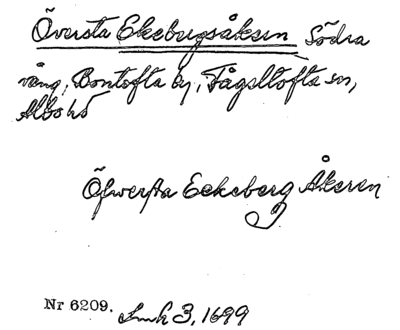 Översta Ekebergsåkern Södra
vång, Bontofta by, Fågeltofta sn,
Albo hd
Öfwersta Eekeberg Åkeren
Nr 6209. Lmh 3, 1699